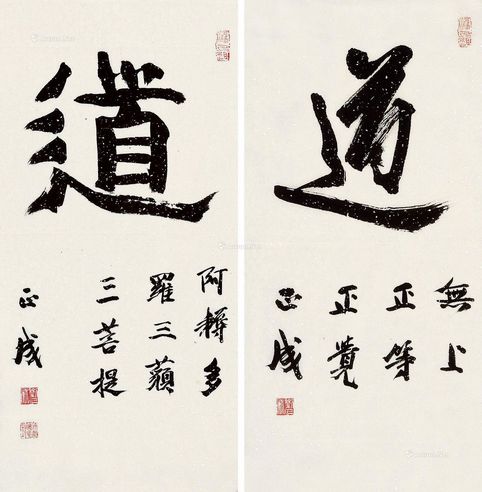 道
無上
正等
正覺
正成
道
阿耨多
羅三藐
三菩提
正成